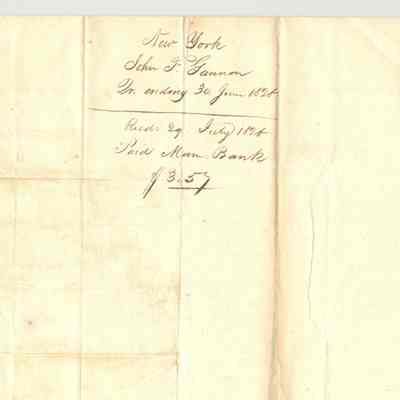 New York
John F. Gannon
Qr. ending 30 June 1826
Recd. 29 July 1826
Paid Man. Bank
$ 3.57